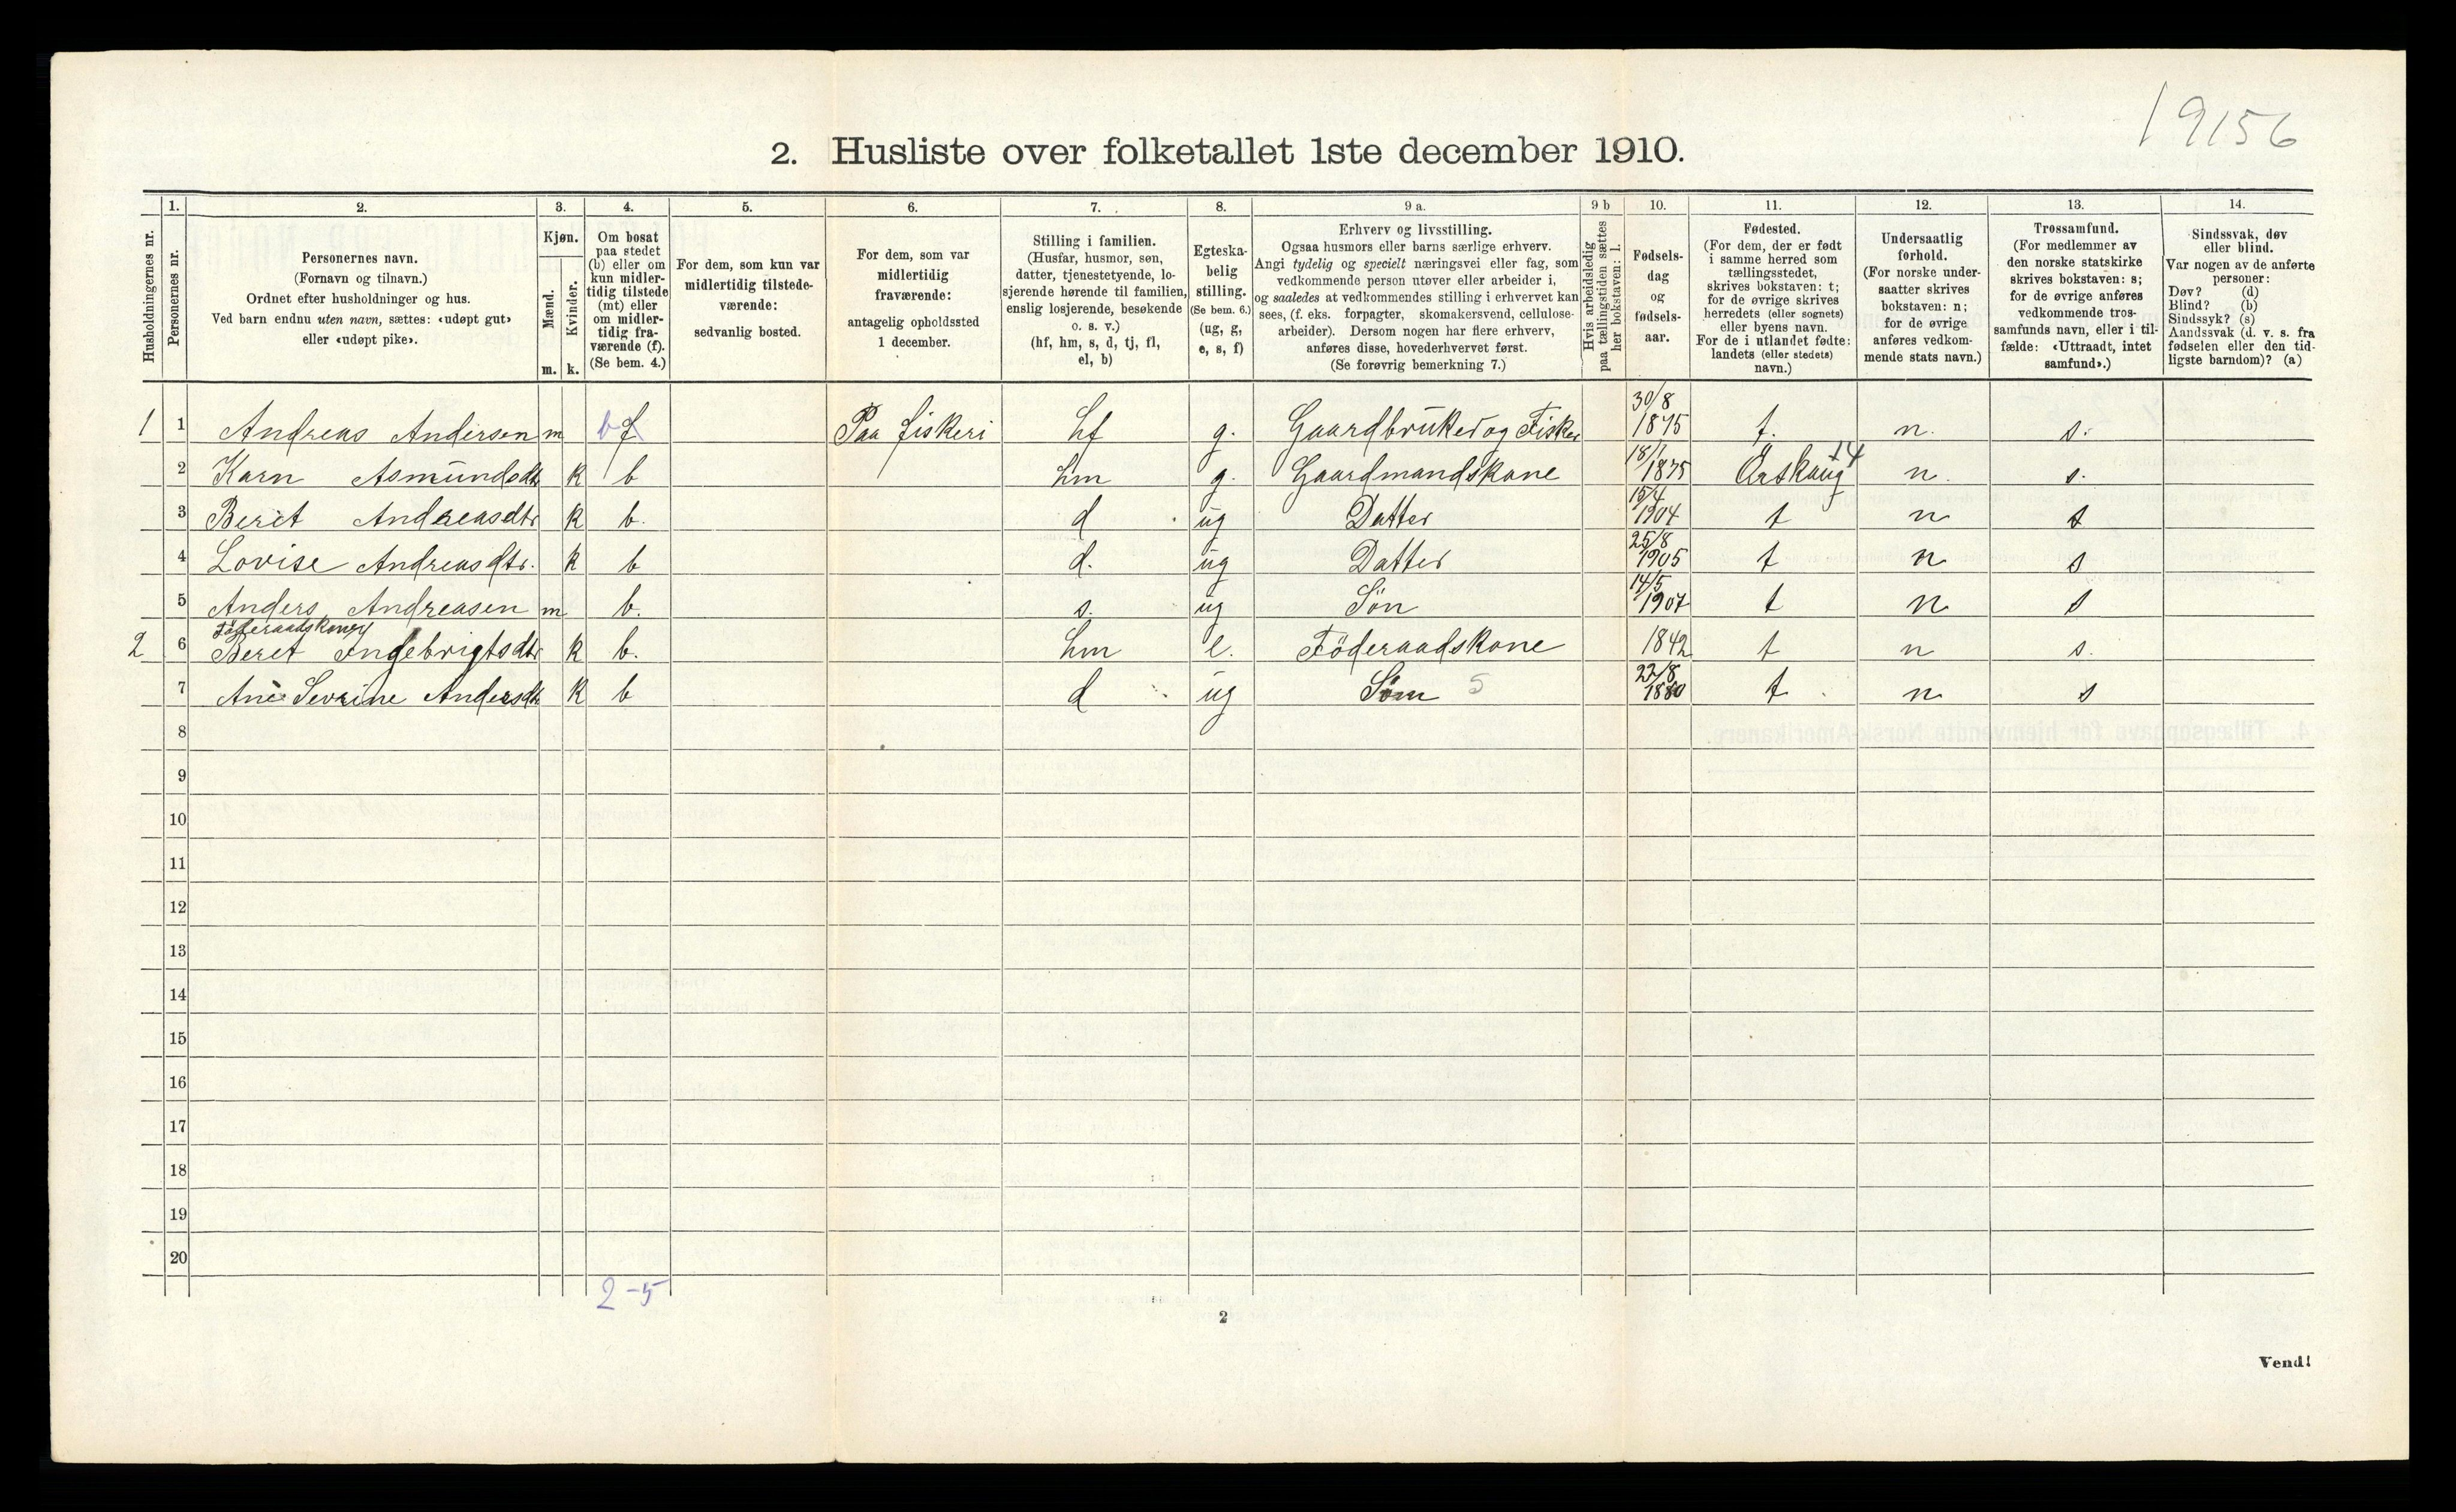 19156
2. Husliste over folketallet 1ste december 1910.
Husholdningernes nr.
1. Personernes nr.
2. Personernes navn. (Fornavn og tilnavn.) Ordnet efter husholdninger og hus. Ved barn endnu uten navn, sættes: «udøpt gut» eller «udøpt pike».
3. Kjøn. Mænd. m. Kvinder. k.
4. Om bosat paa stedet (b) eller om kun midlertidig tilstede (mt) eller om midlertidig fraværende (f). (Se bem. 4.)
5. For dem, som kun var midlertidig tilstedeværende: sedvanlig bosted.
6. For dem, som var midlertidig fraværende: antagelig opholdssted 1 december.
7. Stilling i familien. (Husfar, husmor, søn, datter, tjenestetyende, losjerende hørende til familien, enslig losjerende, besøkende o. s. v.) (hf, hm, s, d, tj, fl, el, b)
8. Egteskabelig stilling. (Se bem. 6.) (ug, g, e, s, f)
9 a. Erhverv og livsstilling. Ogsaa husmors eller barns særlige erhverv. Angi tydelig og specielt næringsvei eller fag, som vedkommende person utøver eller arbeider i, og saaledes at vedkommendes stilling i erhvervet kan sees, (f. eks. forpagter, skomakersvend, cellulose-arbeider). Dersom nogen har flere erhverv, anføres disse, hovederhvervet først. (Se forøvrig bemerkning 7.)
9 b Hvis arbeidsledig paa tællingstiden sættes her bokstaven: l.
10. Fødselsdag og fødselsaar.
11. Fødested. (For dem, der er født i samme herred som tællingsstedet, skrives bokstaven: t; for de øvrige skrives herredets (eller sognets) eller byens navn. For de i utlandet fødte: landets (eller stedets) navn.)
12. Undersaatlig forhold. (For norske undersaatter skrives bokstaven: n; for de øvrige anføres vedkommende stats navn.)
13. Trossamfund. (For medlemmer av den norske statskirke skrives bokstaven: s; for de øvrige anføres vedkommende trossamfunds navn, eller i tilfælde: «Uttraadt, intet samfund».)
14. Sindssvak, døv eller blind. Var nogen av de anførte personer: Døv? (d) Blind? (b) Sindssyk? (s) Aandssvak (d. v. s. fra fødselen eller den tidligste barndom)? (a)
1 1 Andreas Andersen m b f Paa fiskeri hf g. Gaardbruker og Fisker 30/8 1875 t. n. s.
2 Karn Asmundsdtr k b hm g. Gaardmandskone 18/1 1875 Ørskaug 14 n. s.
3 Beret Andreasdtr k b. d ug Datter 15/4 1904 t n s
4 Lovise Andreasdtr. k b d. ug Datter 25/8 1905 t n s
5 Anders Andreasen m b. s. ug Søn 14/5 1907 t n s
Föderaadskone
2 6 Beret Ingebrigtsdtr k b. hm e. Föderaadskone 1842 t n s.
7 Ane Sevrine Andersdtr k b d ug Søm 5 22/8 1880 t n s
8
9
10
11
12
13
14
15
16
17
18
19
20
2-5
2
Vend!